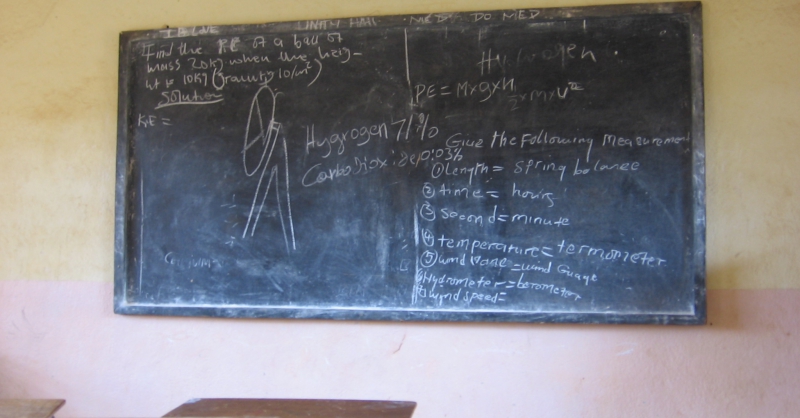 Find the P.E of a ball of
mass 20kg when the heig-
ht is 10kg (gravity 10/m²)
Solution
K.E =
Hygrogen 71%
Carbo Diox
0.03%
Hydrogen.
PE = M×g×H
½×M×V²
Give the Following Measurement
① Length = Spring balance
② time = hours
③ second = minute
④ temperature = termometer
⑤ wind Vane = wind Guage
⑥ Hydrometer = barometer
⑦ Wind speed =